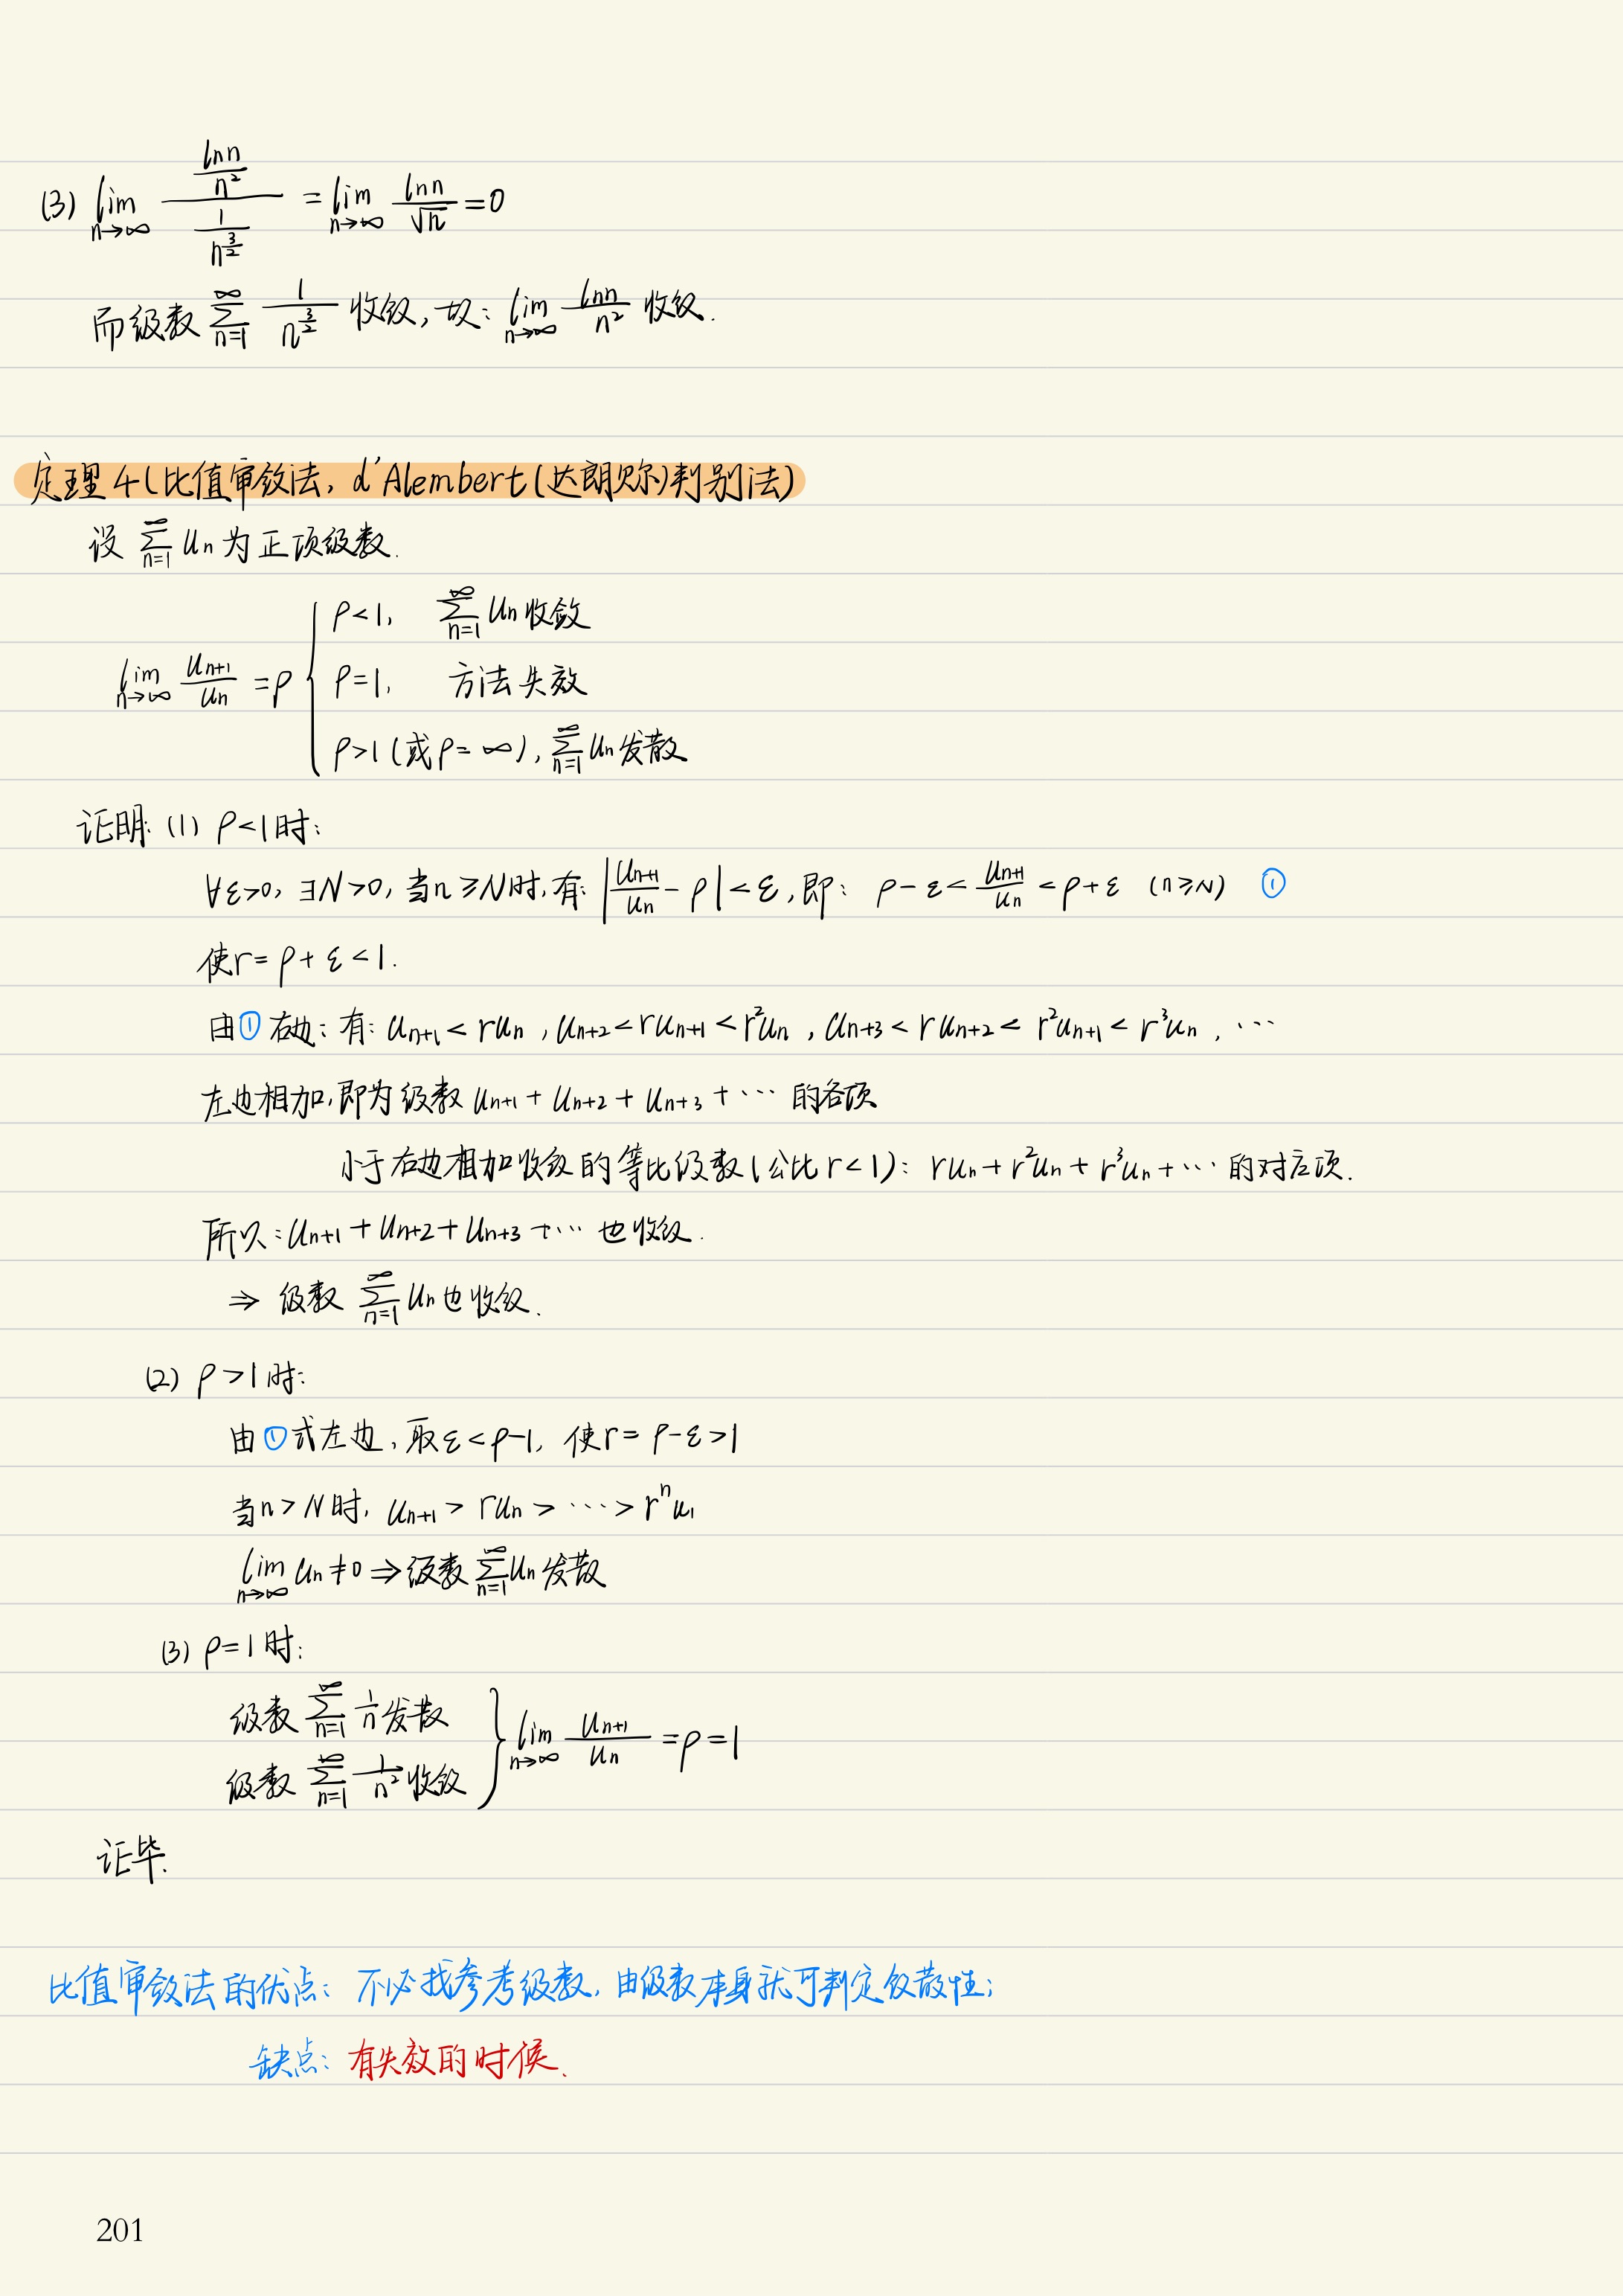 (3) lim_{n→∞} (ln n / n²) / (1 / n^{3/2}) = lim_{n→∞} ln n / √n = 0
而级数 ∑_{n=1}^{∞} 1/n^{3/2} 收敛, 故: lim_{n→∞} ln n / n² 收敛.
定理4(比值审敛法, d'Alembert(达朗贝尔)判别法)
设 ∑_{n=1}^{∞} uₙ 为正项级数.
lim_{n→∞} u_{n+1}/u_n = ρ {
ρ<1, ∑_{n=1}^{∞} uₙ 收敛
ρ=1, 方法失效
ρ>1 (或ρ=∞), ∑_{n=1}^{∞} uₙ 发散
证明: (1) ρ<1时:
∀ε>0, ∃N>0, 当n≥N时, 有: |u_{n+1}/u_n - ρ| < ε, 即: ρ-ε < u_{n+1}/u_n < ρ+ε (n≥N) ①
使r=ρ+ε<1.
由①右边: 有: u_{n+1} < ru_n, u_{n+2} < ru_{n+1} < r²u_n, u_{n+3} < ru_{n+2} < r²u_{n+1} < r³u_n, …
左边相加, 即为级数 u_{n+1} + u_{n+2} + u_{n+3} + … 的各项
小于右边相加收敛的等比级数(公比r<1): ru_n + r²u_n + r³u_n + … 的对应项.
所以: u_{n+1} + u_{n+2} + u_{n+3} + … 也收敛.
⇒ 级数 ∑_{n=1}^{∞} uₙ 也收敛.
(2) ρ>1时:
由①式左边, 取ε<ρ-1, 使r=ρ-ε>1
当n>N时, u_{n+1} > ru_n > … > rⁿu₁
lim_{n→∞} u_n ≠ 0 ⇒ 级数 ∑_{n=1}^{∞} uₙ 发散
(3) ρ=1时:
级数 ∑_{n=1}^{∞} 1/n 发散
级数 ∑_{n=1}^{∞} 1/n² 收敛
} lim_{n→∞} u_{n+1}/u_n = ρ = 1
证毕.
比值审敛法的优点: 不必找参考级数, 由级数本身就可判定敛散性;
缺点: 有失效的时候.
201